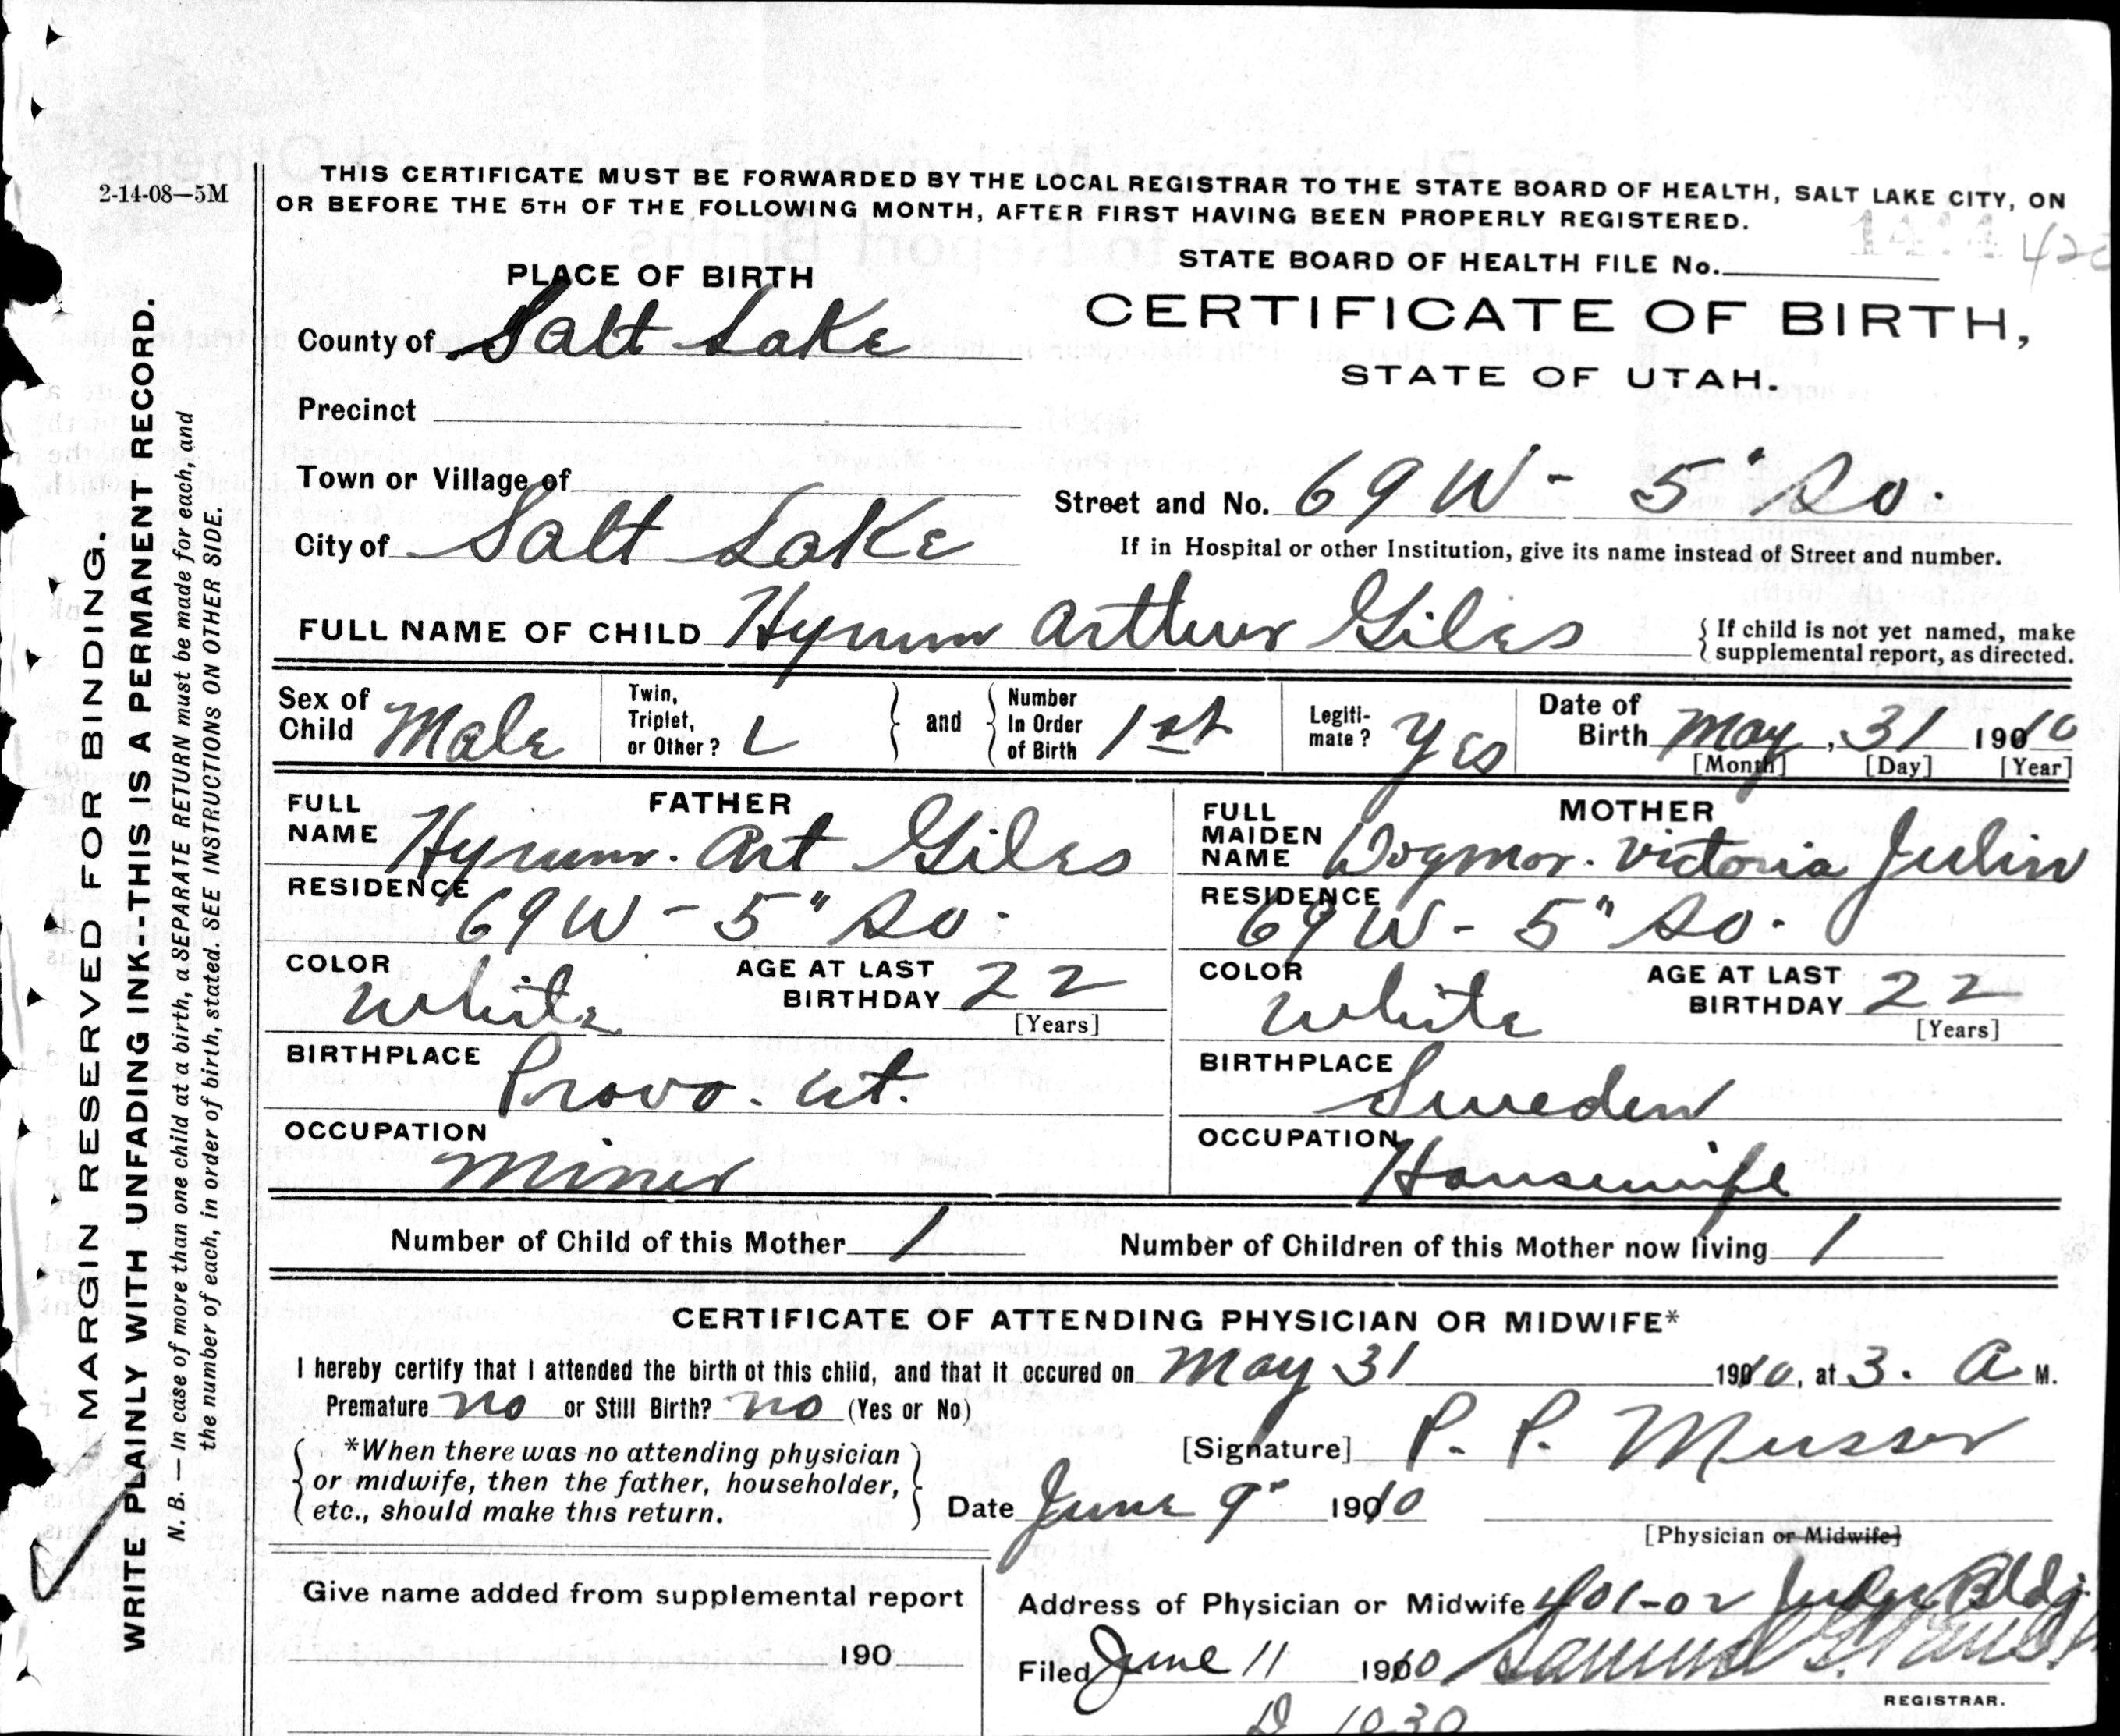 2-14-08—5M
THIS CERTIFICATE MUST BE FORWARDED BY THE LOCAL REGISTRAR TO THE STATE BOARD OF HEALTH, SALT LAKE CITY, ON
OR BEFORE THE 5TH OF THE FOLLOWING MONTH, AFTER FIRST HAVING BEEN PROPERLY REGISTERED.
MARGIN RESERVED FOR BINDING.
WRITE PLAINLY WITH UNFADING INK-THIS IS A PERMANENT RECORD.
N. B. — In case of more than one child at a birth, a SEPARATE RETURN must be made for each, and
the number of each, in order of birth, stated. SEE INSTRUCTIONS ON OTHER SIDE.
PLACE OF BIRTH
County of Salt Lake
Precinct
Town or Village of
City of Salt Lake
STATE BOARD OF HEALTH FILE No.
CERTIFICATE OF BIRTH,
STATE OF UTAH.
Street and No. 69 W - 5" So.
If in Hospital or other Institution, give its name instead of Street and number.
FULL NAME OF CHILD Hyrum Arthur Giles
If child is not yet named, make
supplemental report, as directed.
Sex of Child Male
Twin, Triplet, or Other?
and
Number In Order of Birth 1st
Legiti-mate? Yes
Date of Birth May, 31 1910
[Month] [Day] [Year]
FATHER
FULL NAME Hyrum. Art Giles
RESIDENCE 69 W - 5" So.
COLOR White
AGE AT LAST BIRTHDAY 22
[Years]
BIRTHPLACE Provo. Ut.
OCCUPATION Miner
MOTHER
FULL MAIDEN NAME Dogmor. Victoria Julin
RESIDENCE 69 W - 5" So.
COLOR White
AGE AT LAST BIRTHDAY 22
[Years]
BIRTHPLACE Sweden
OCCUPATION Housewife
Number of Child of this Mother 1
Number of Children of this Mother now living 1
CERTIFICATE OF ATTENDING PHYSICIAN OR MIDWIFE*
I hereby certify that I attended the birth of this child, and that it occured on May 31 1910, at 3. A M.
Premature no or Still Birth? no (Yes or No)
*When there was no attending physician
or midwife, then the father, householder,
etc., should make this return.
[Signature] P. P. Musser
Date June 9" 1910
[Physician or Midwife]
Give name added from supplemental report
190
Address of Physician or Midwife 401-02 Judge Bldg.
Filed June 11 1910 Samuel G.
REGISTRAR.